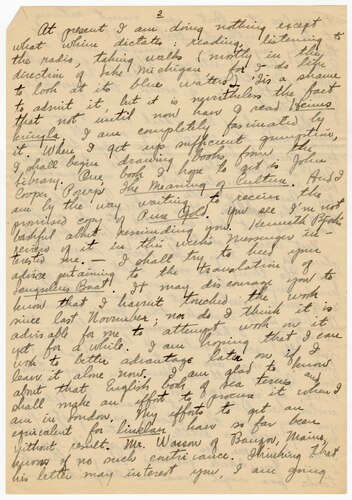 2
At present I am doing nothing except
what whim dictates: reading, listening to
the radio, taking walks (mostly in the
direction of Lake Michigan for I do like
to look at its blue waters). 'Tis a shame
to admit it, but it is nevertheless the fact
that not until now have I read
. I am completely fascinated by
it. When I get up sufficient gumption,
I shall begin drawing books from the
library. One book I hope to get is John
Cowper Powys's The Meaning of Culture. And I
am by the way waiting to receive the
promised copy of Pure Gold. You see I'm not
bashful about reminding you. Kenneth
review of it in this week's Messenger in-
terested me. — I shall try to heed your
advice pertaining to the translation of
. It may discourage you to
know that I haven't touched the work
since last November; nor do I think it is
advisable for me to attempt work on it
yet for a while. I am hoping that I can
work to better advantage later on if I
leave it alone now. I am glad to know
about that English book of sea terms and
shall make an effort to procure it when I
am in London. My efforts to get an
equivalent for have so far been
without result. Mr. Wasson of Bangor, Maine,
knows of no such contrivance. Thinking that
his letter may interest you, I am going